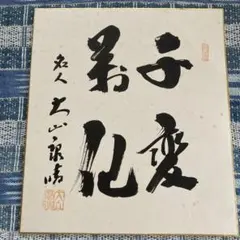 千変
万化
名人 大山康晴